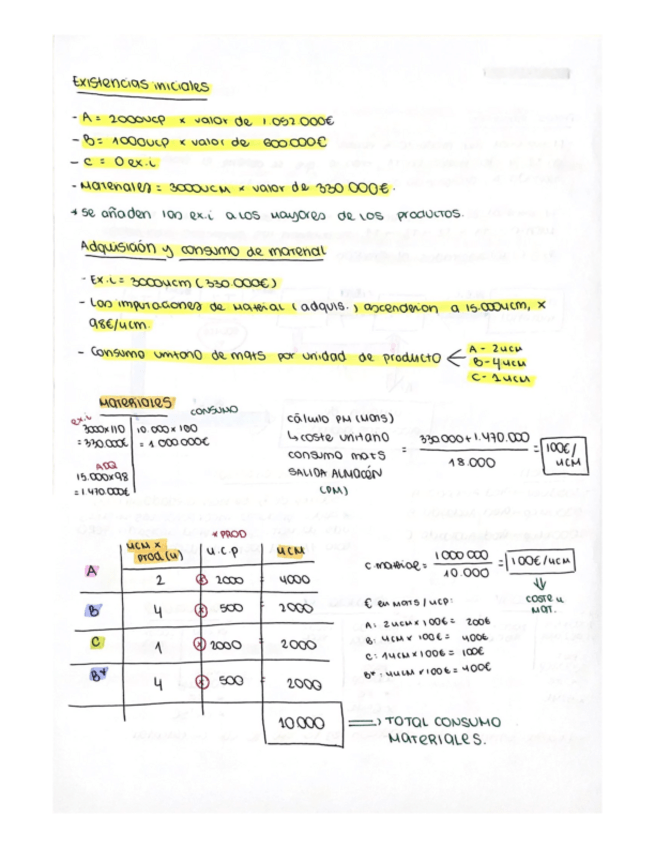 Existencias iniciales
- A = 2000ucp x valor de 1.092.000€
- B = 1000ucp x valor de 800.000€
- C = 0 ex.i
- Materiales = 3000UCM x valor de 330.000€.
* se añaden las ex.i a los mayores de los productos.
Adquisición y consumo de material
- Ex.i = 3000ucm (330.000€)
- Las imputaciones de material (adquis.) ascendieron a 15.000ucm, x
98€/ucm.
- Consumo unitario de mats por unidad de producto
A - 2ucm
B - 4ucm
C - 1ucm
Materiales
ex.i
CONSUMO
3000x110
= 330.000€
10.000 x 100
= 1.000.000€
ADQ
15.000x98
= 1.470.000€
cálculo PM (mats)
↳ coste unitario
consumo mats
SALIDA ALMACÉN
(PM)
= 330.000 + 1.470.000
18.000
= 100€/
UCM
UCM x
prod (u)
* PROD
u.c.p
UCM
A 2 x 2000 = 4000
B 4 x 500 = 2000
C 1 x 2000 = 2000
B* 4 x 500 = 2000
10000 => TOTAL CONSUMO
MATERIALES.
= 1000 000
10.000
= 100€/ucm
coste u
MAT.
€ en mats/ucp:
A: 2ucm x 100€ = 200€
B: 4ucm x 100€ = 400€
C: 1ucm x 100€ = 100€
B*: 4ucm x 100€ = 400€